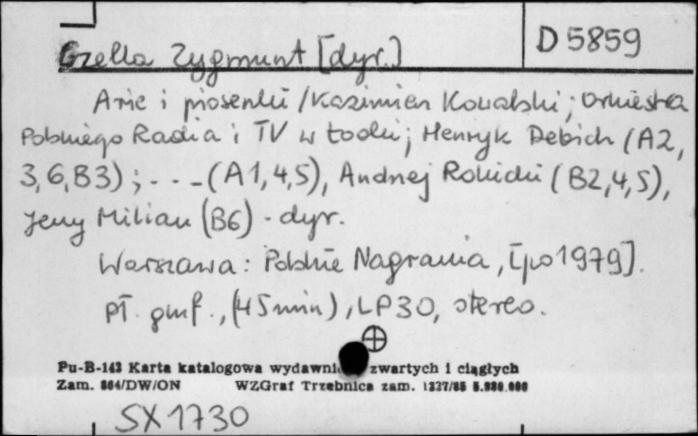 D 5859
Gzella Zygmunt [dyr.]
Arie i piosenki / Kazimierz Kowalski ; Orkiestra
Polskiego Radia i TV w Łodzi ; Henryk Debich (A2,
3,6,B3) ; - - - (A1,4,5), Andrzej Rokicki (B2,4,5),
Jerzy Milian (B6) - dyr.
Warszawa : Polskie Nagrania, [po 1979].
Pł. gmf., (45 min), LP30, stereo.
Pu-B-143 Karta katalogowa wydawni zwartych i ciągłych
Zam. 864/DW/ON WZGraf Trzebnica zam. 1337/85 5.980.000
SX 1730